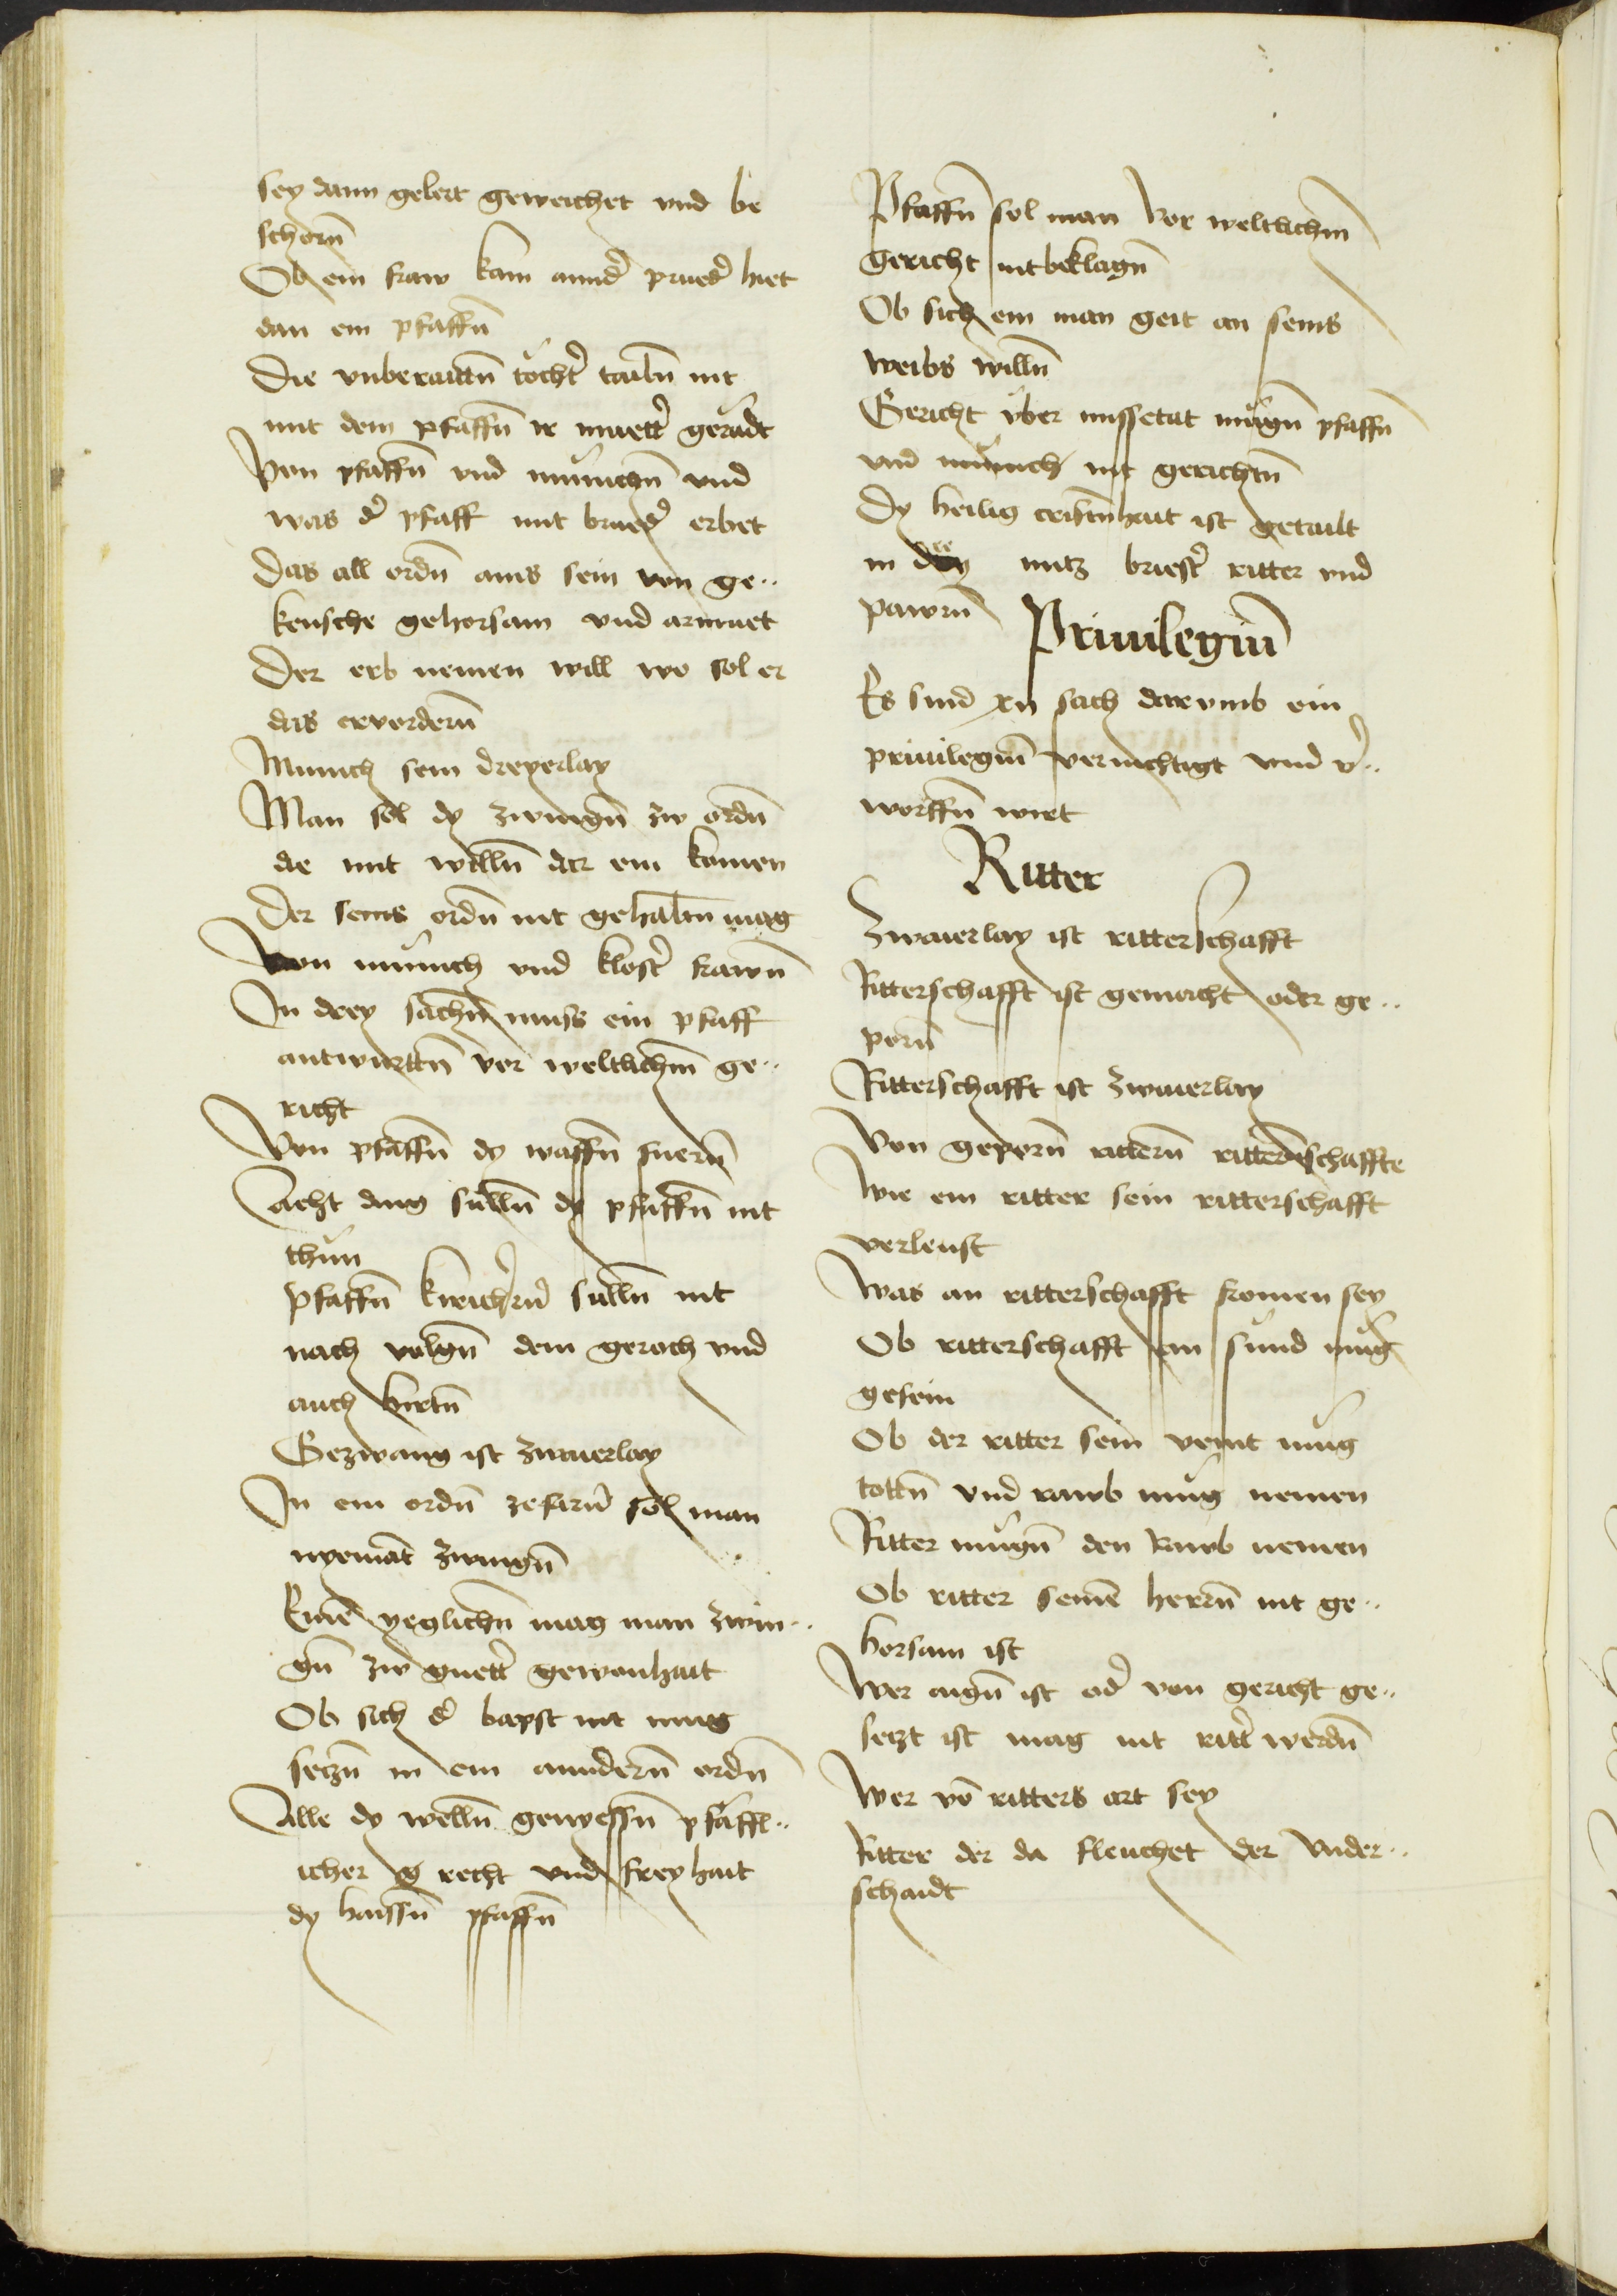 sey dann gelert geweichet vnd be
schorn̄
Ob ein fraw kain annd̄ prued̄ hiet
dan ein pfaffn̄
Die vnberaittn̄ tocht̄ tailn̄ nit
mit dem pfaffn̄ ir muett̄ geradt
Von pfaffn̄ vnd münichn̄ vnd
was d̄ pfaff mit brued̄ erbet
Das all ordn̄ ains sein von ge..
keusche gehorsam vnd armuet
Der erb nemen will wo sol er
das ervordern̄
Munich sein dreyerlay
Man sol dy zwingn̄ zw ordn̄
die mit willn̄ dar ein komen
Der seins ordn̄ nit gehaltn̄ mag
Von münich vnd klost̄ frawn̄
In drey sachn̄ muss ein pfaff
antwurttn̄ vor weltlichm̄ ge..
richt
Von pfaffn̄ dy waffn̄ fuern̄
Acht ding sulln̄ dy pfaffn̄ nit
thün
Pfaffn̄ kirichn̄ sulln̄ nit
nach volgn̄ dem geroch vnd
auch hirtn̄
Gezwang ist zwaierlay
In ein ordn̄ zefarn̄ sol man
nyemāt zwingn̄
Einē yeglichn̄ mag man zwin..
gn̄ zw guett̄ gewonhait
Ob sich d̄ bapst nit mug
setzn̄ in ein anndern̄ ordn̄
Alle dy welln̄ genyessn̄ pfäffl..
icher recht vnd freyhait
dy haissn̄ pfaffn̄
Pfaffn̄ sol man vor weltlichm̄
gericht nit beklagn̄
Ob sich ein man geit an seins
weibs willn̄
Gericht über missetat mügn̄ pfaffn̄
vnd münich nit gerichtn̄
Dy heilig cristn̄hait ist getailt
in nutz briest̄ ritter vnd
pawrn̄
Priuilegiū
Es sind xii sach darvmb ein
priuilegiū vernichtigt vnd v̄..
worffn̄ wirt
Ritter
Zwaierlay ist ritterschafft
Ritterschafft ist gemacht oder ge..
porn̄
Ritterschafft ist zwaierlay
Von geporn̄ rittern̄ ritterschaffte
Wie ein ritter sein ritterschafft
verleust
Was an ritterschafft komen sey
Ob ritterschafft an sünd müg
gesein
Ob der ritter sein veint müg
tottn̄ vnd rawb müg nemen
Ritter mügn̄ den rawb nemen
Ob ritter seinē herrn̄ nit ge..
horsam ist
Wer aign̄ ist od̄ von gericht ge..
setzt ist mag nit ritt̄ werdn̄
Wer vō ritters art sey
Ritter der da fleuchet der vnder..
schaidt